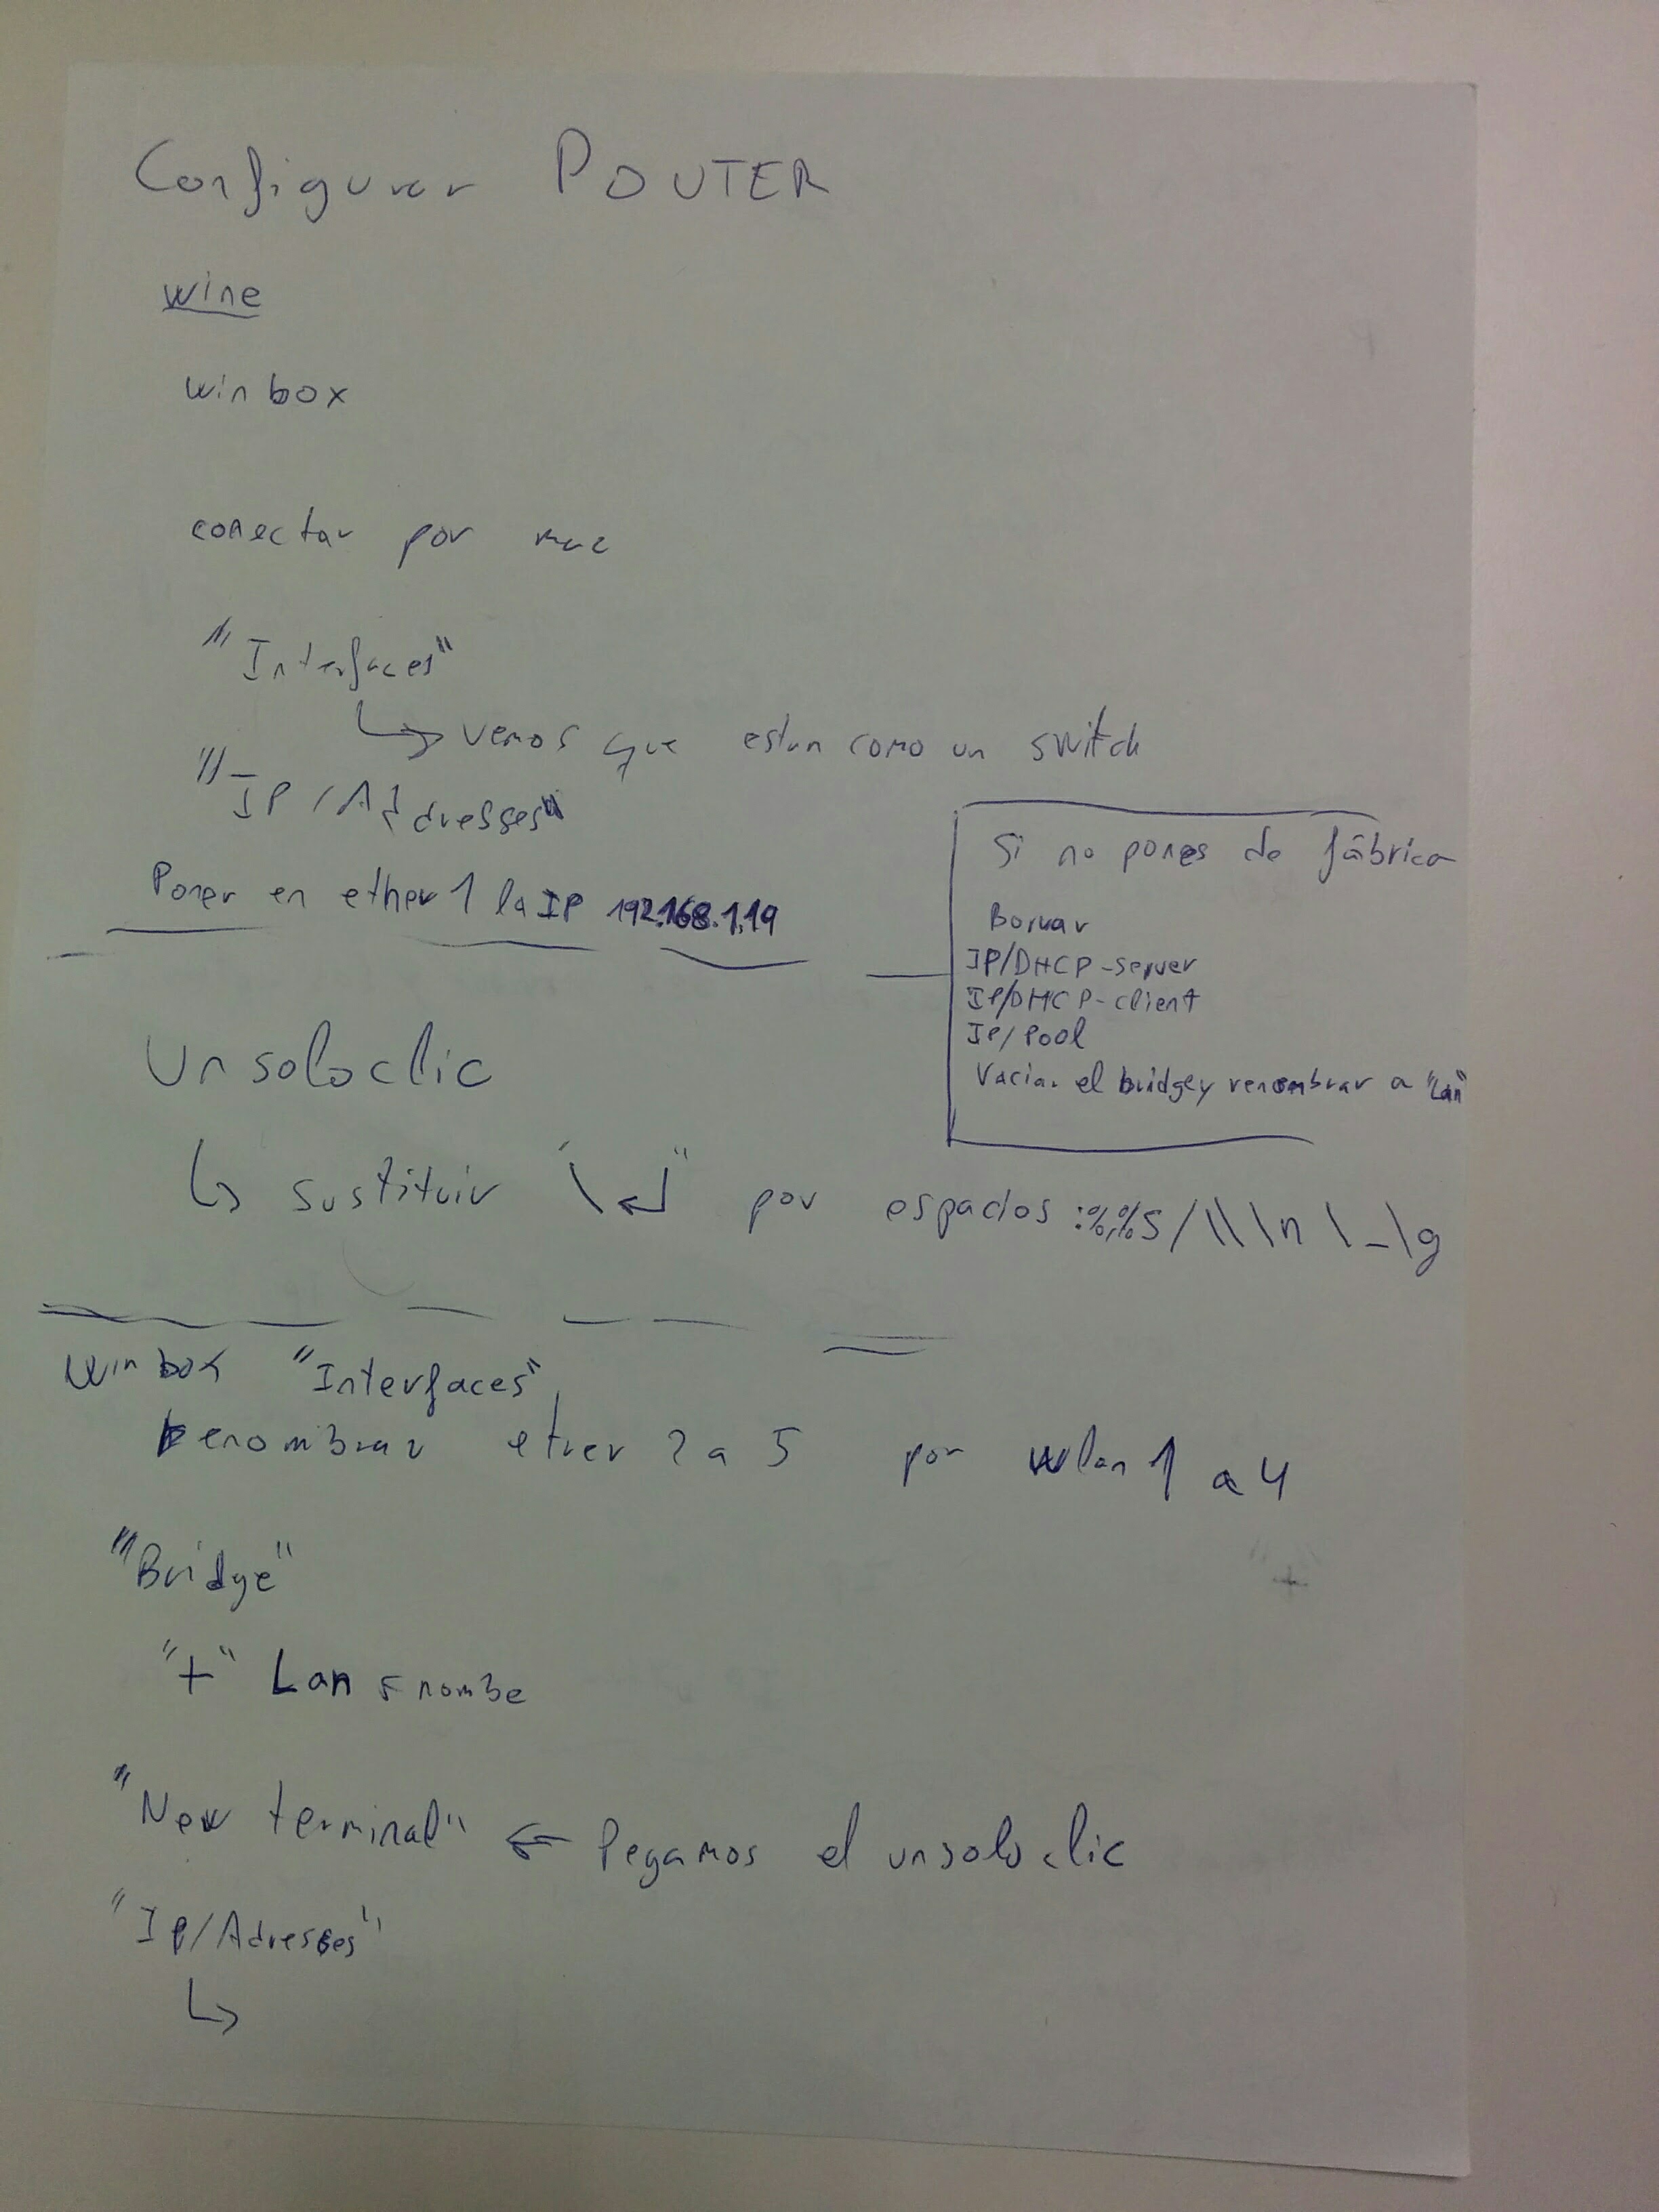 Configurar ROUTER
wine
winbox
conectar por mac
"Interfaces"
↳ vemos que estan como un switch
"IP/Addresses"
Poner en ether1 la IP 192.168.1.19
Si no pones de fábrica
Borrar
IP/DHCP-server
IP/DHCP-client
IP/Pool
Vaciar el bridge y renombrar a "Lan"
Unsoloclic
↳ sustituir "\↵" por espacios :%s/\\\n\_\g
Winbox "Interfaces"
Renombrar ether 2 a 5 por wlan 1 a 4
"Bridge"
"+" Lan nombe
"New terminal" ← Pegamos el unsoloclic
"Ip/Adresses"
↳